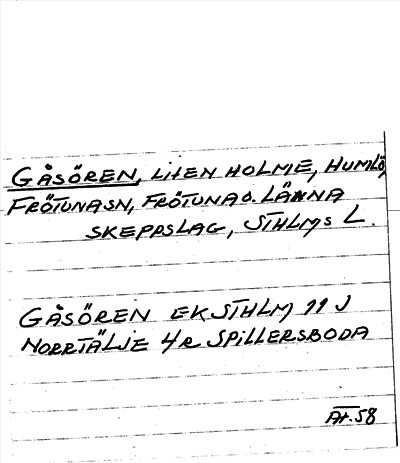 GÅSÖREN, LITEN HOLME, HUMLÖ,
FRÖTUNA SN, FRÖTUNA O. LÄNNA
SKEPPSLAG, STHLMS L.
GÅSÖREN EK STHLM 11 J
NORRTÄLJE 4 R SPILLERSBODA
ÅH. 58